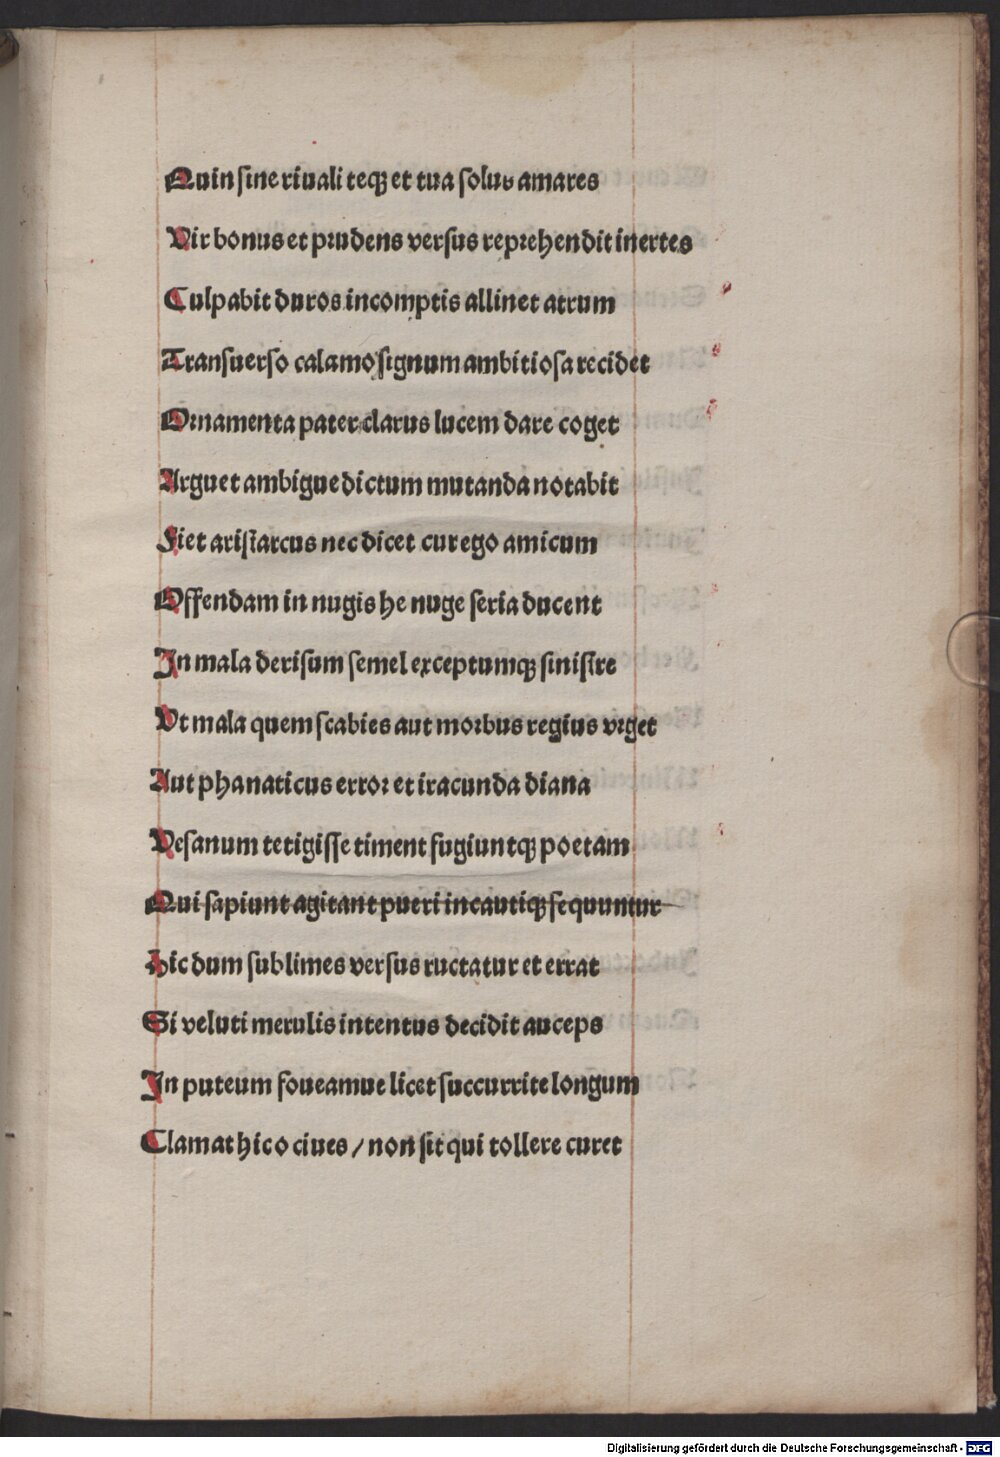 Quin sine riuali teqꝫ et tua solus amares
Vir bonus et prudens versus reprehendit inertes
Culpabit duros incomptis allinet atrum
Transuerso calamo signum ambitiosa recidet
Ornamenta pater clarus lucem dare coget
Arguet ambigue dictum mutanda notabit
Fiet aristarcus nec dicet cur ego amicum
Offendam in nugis he nuge seria ducent
In mala derisum semel exceptumqꝫ sinistre
Vt mala quem scabies aut morbus regius vrget
Aut phanaticus error et iracunda diana
Vesanum tetigisse timent fugiuntqꝫ poetam
Qui sapiunt agitant pueri incautiqꝫ sequuntur
Hic dum sublimes versus ructatur et errat
Si veluti merulis intentus decidit auceps
In puteum foueamue licet succurrite longum
Clamat hic o ciues / non sit qui tollere curet
Digitalisierung gefördert durch die Deutsche Forschungsgemeinschaft - DFG